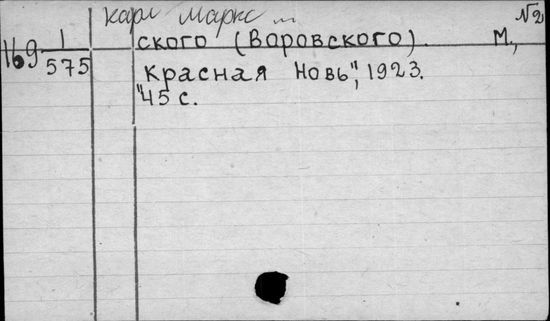 Карл Маркс ...
№2
ского (Воровского). М.,
1
575
"Красная Новь", 1923.
45 с.